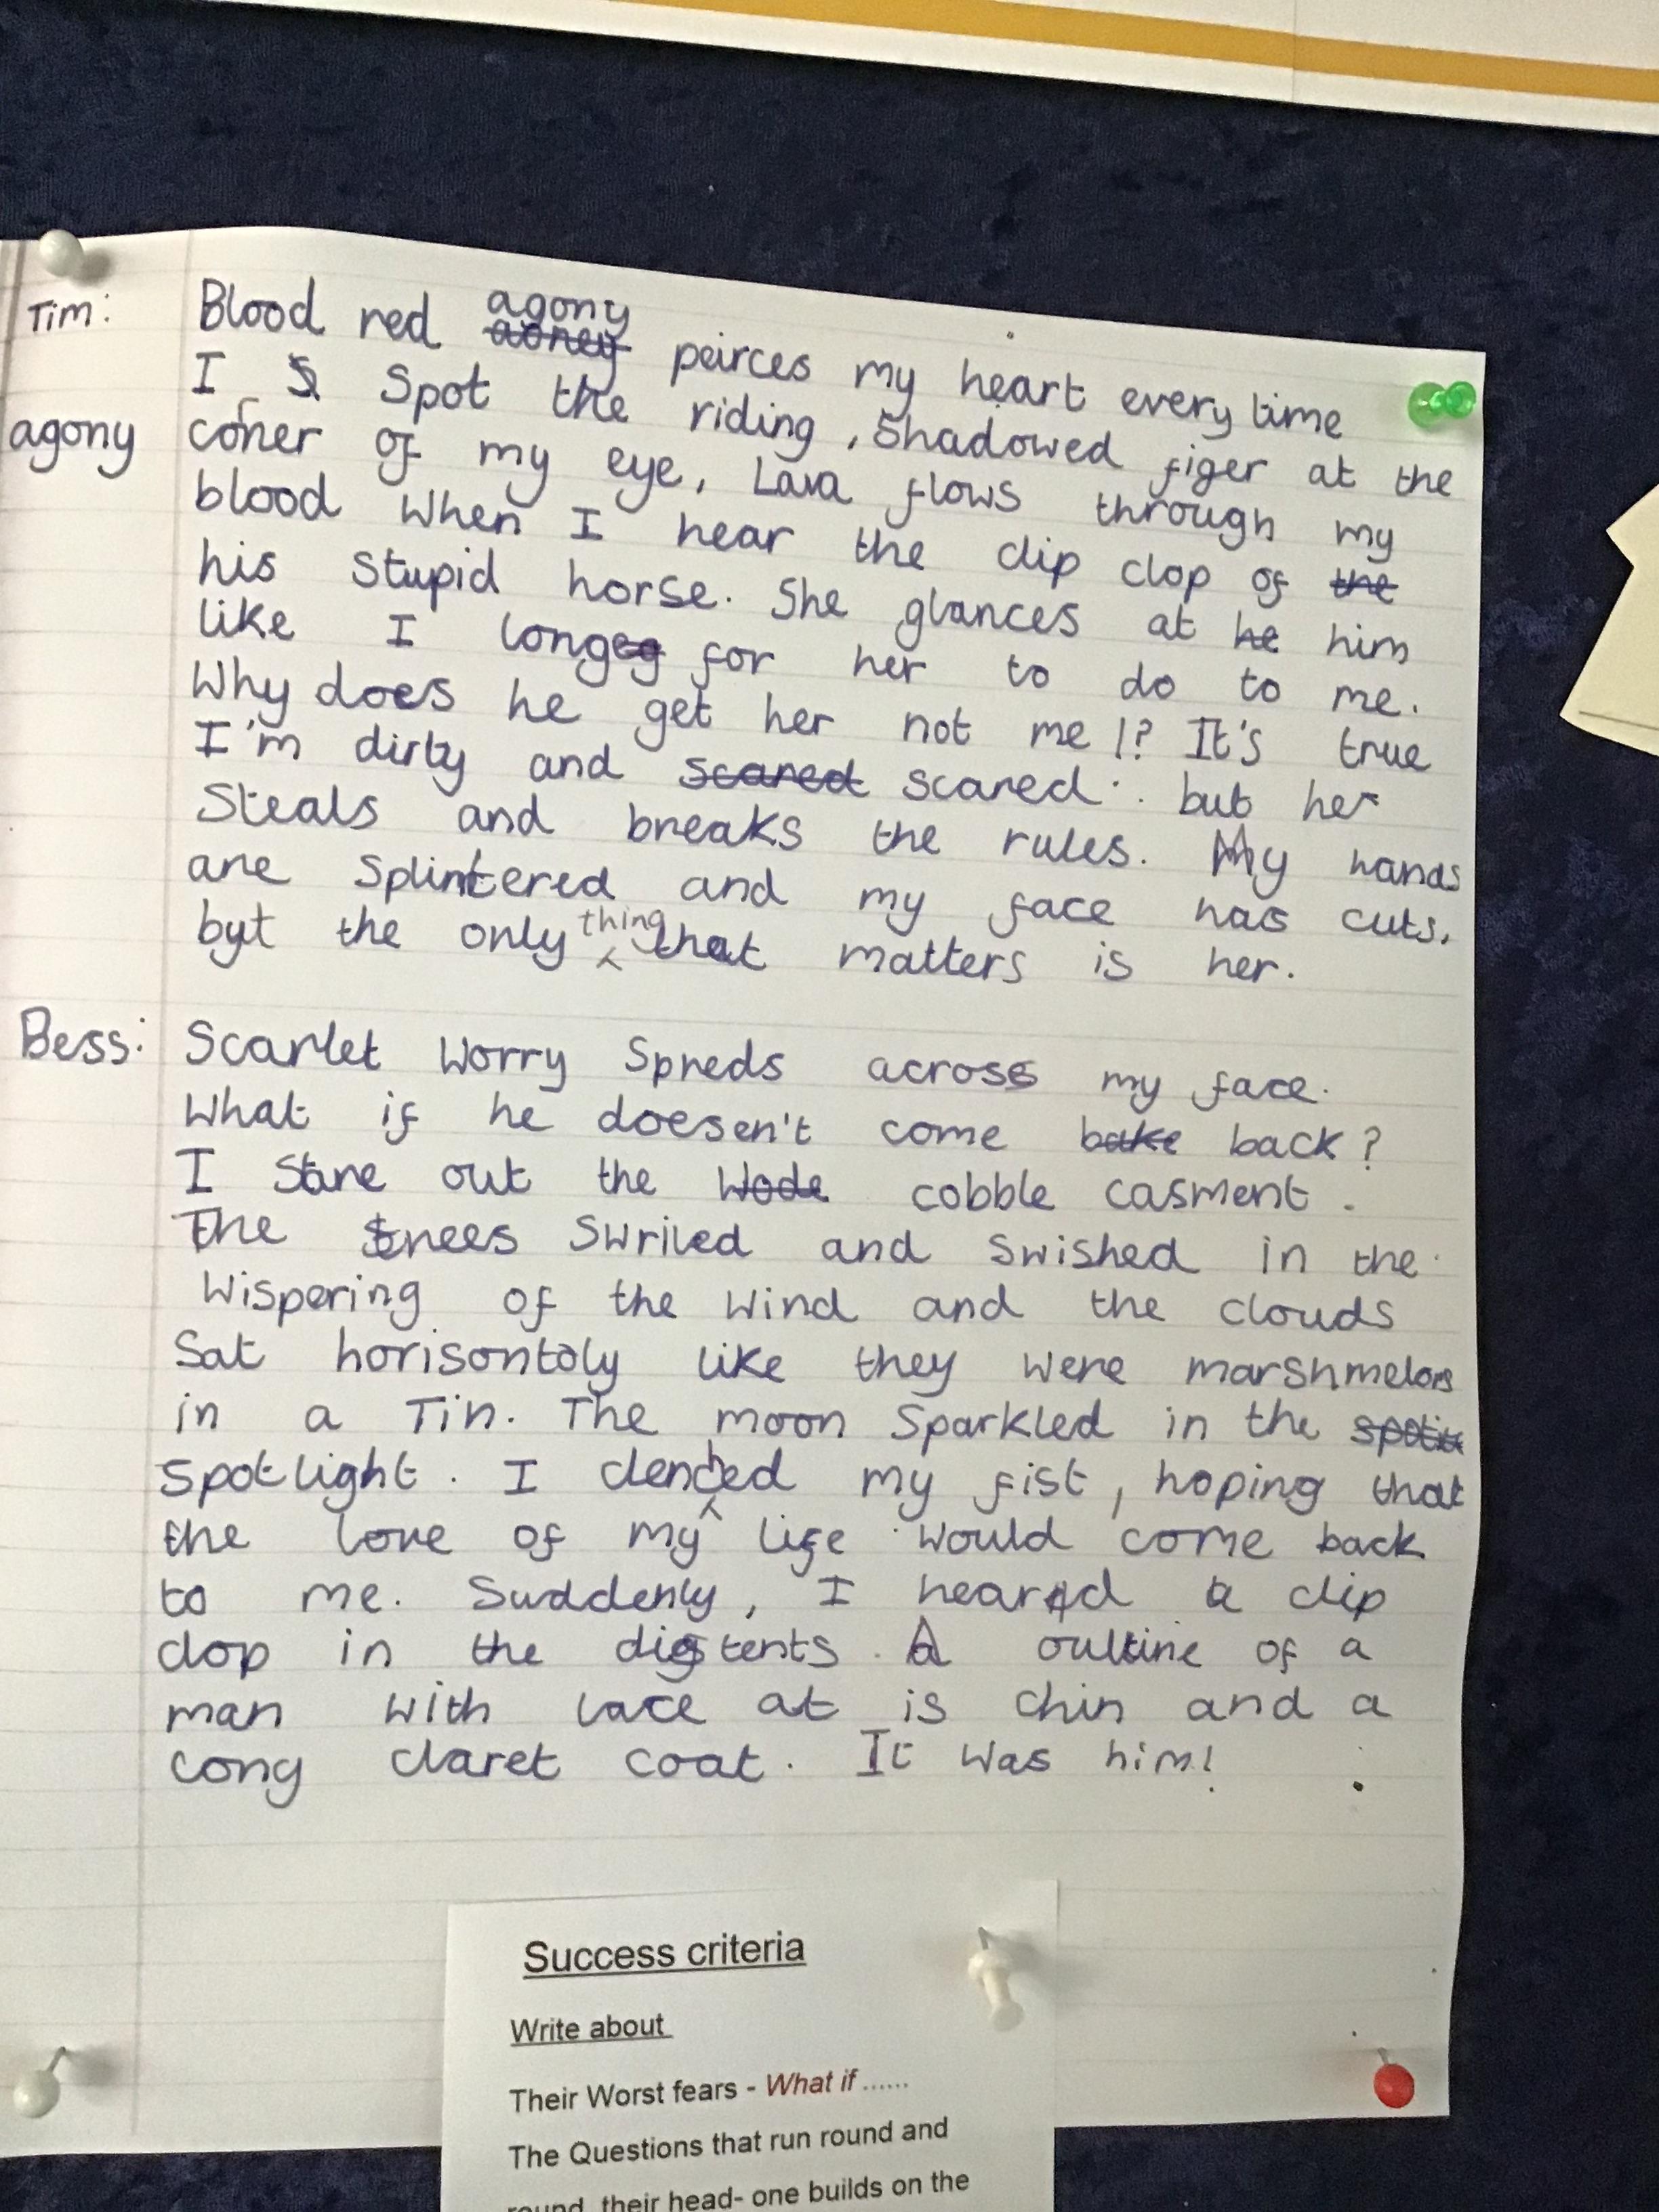 Tim: Blood red agony peirces my heart every time
I Spot the riding, Shadowed figer at the
agony corner of my eye, Lava flows through my
blood when I hear the clip clop of the
his stupid horse. She glances at he him
like I long for her to do to me.
Why does he get her not me!? It's true
I'm dirty and scared scared. but her
Steals and breaks the rules. My hands
are Splintered and my face has cuts.
but the only thing that matters is her.
Bess: Scarlet Worry Spreds across my face.
What if he doesen't come bake back?
I Stare out the Wode cobble casment.
The trees Swriled and swished in the
Wispering of the wind and the clouds
Sat horisontaly like they were marshmelons
in a Tin. The moon Sparkled in the
Spotlight. I clenched my fist, hoping that
the love of my life would come back
to me. Suddenly, I heard a clip
clop in the distents. A outline of a
man with lace at is chin and a
long claret coat. It was him!
Success criteria
Write about
Their Worst fears - What if ......
The Questions that run round and
round their head- one builds on the